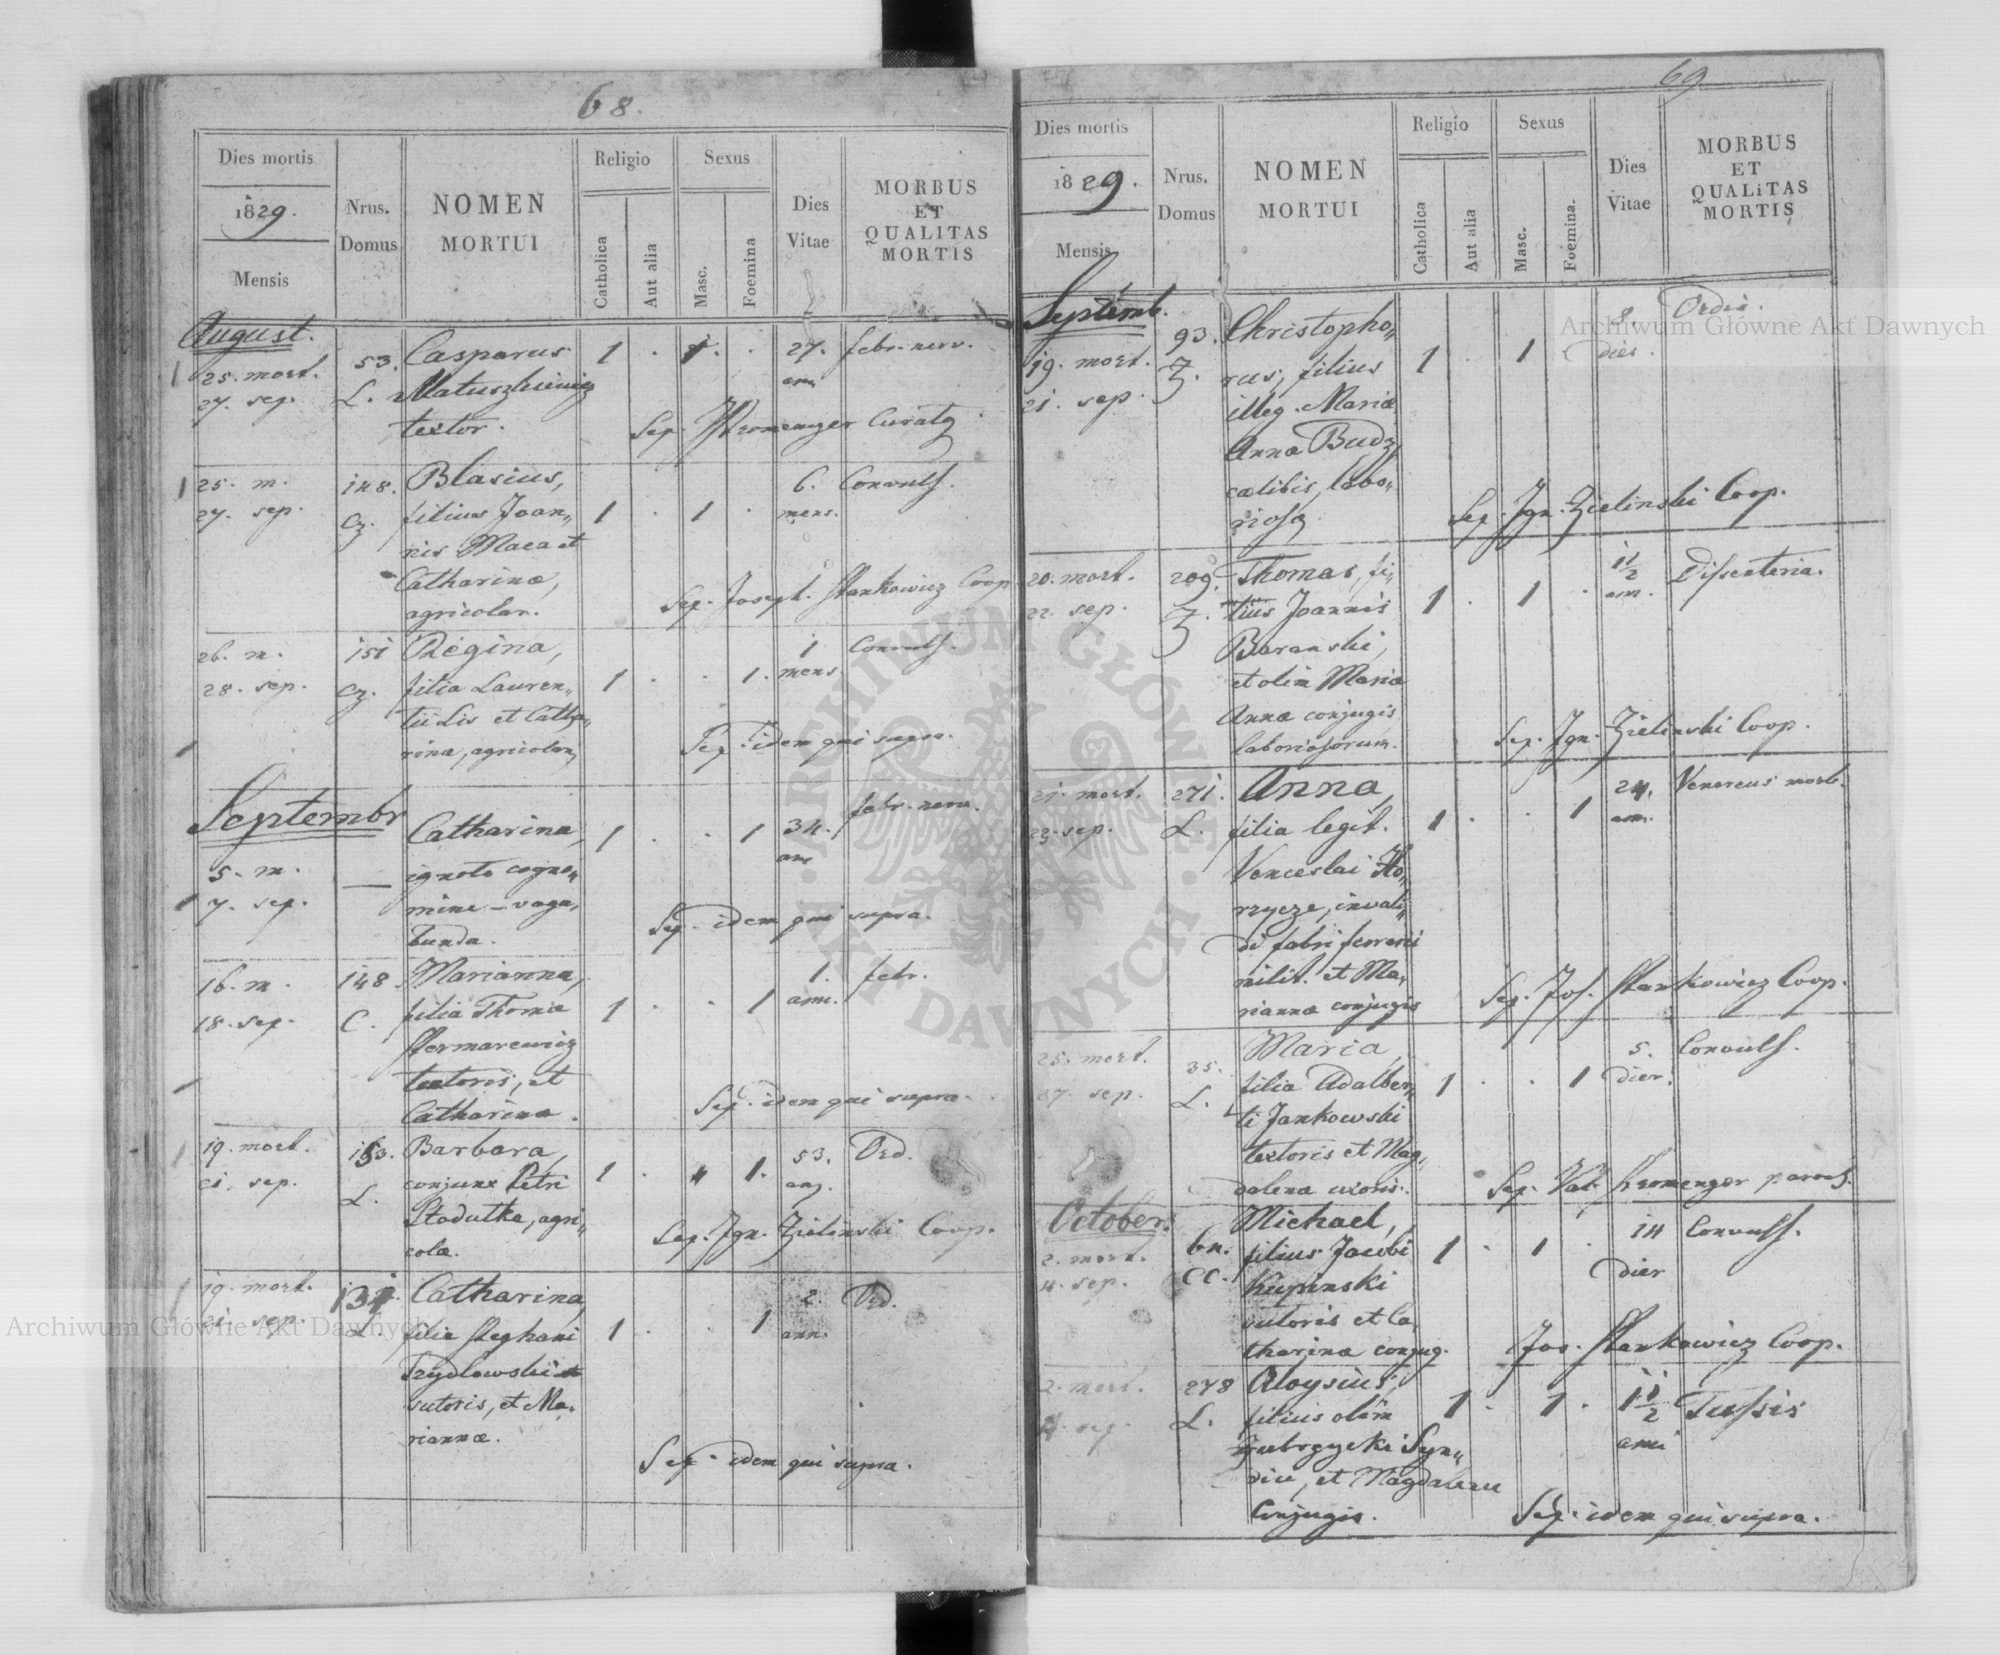 68.
Dies mortis
1829.
Mensis
Nrus.
Domus
NOMEN
MORTUI
Religio
Catholica
Aut alia
Sexus
Masc.
Foemina
Dies
Vitae
MORBUS
ET
QUALITAS
MORTIS
August.
25. mort.
27. sep.
53.
L.
Casparus
Matuszkiewicz
textor.
1 . 1 .
27.
ann.
febr. nerv.
Sep. Kromenger Curatq
25. m.
27. sep.
148.
Cz.
Blasius,
filius Joan„
nis Maca et
Catharinæ,
agricolar.
1 . 1 .
6.
mens.
Convuls.
Sep. Joseph. Stankowicz Coop
26. m.
28. sep.
151
Cz.
Regina,
filia Lauren„
tii Lis et Catha„
rinæ, agricolar,
1 . . 1.
1
mens
Convuls.
Sep. idem qui supra.
Septembr
5. m.
7. sep.
—
Catharina,
ignoto cogno„
mine – vaga„
bunda.
1 . . 1
34.
ann
febr. nerv.
Sep. idem qui supra.
16. m.
18. sep.
148.
C.
Marianna,
filia Thomæ
textoris, et
Catharinæ.
1 . . 1
1.
anni.
febr.
Sep. idem qui supra.
19. mort.
21. sep.
163.
L.
Barbara,
conjunx Petri
Stadutka, agri„
colæ.
1 . 1.
53.
Ord.
Sep. Ign. Zielinski Coop.
19. mort.
21. sep.
L.
Catharina,
filia Stephani
Trzydlowski
sutoris, et Ma„
riannæ.
1 . . 1
2.
ann.
Ord.
Sep. idem qui supra.
69
Dies mortis
1829.
Mensis
Nrus.
Domus
NOMEN
MORTUI
Religio
Catholica
Aut alia
Sexus
Masc.
Foemina.
Dies
Vitae
MORBUS
ET
QUALiTAS
MORTIS
Septemb.
19. mort.
21. sep.
93.
Z.
Christopho„
rus, filius
illeg. Mariæ
Annæ Budz,
cælibis, labo„
riosæ.
1 . 1
8.
dies.
Ordin.
Sep. Ign. Zielinski Coop.
20. mort.
22. sep.
209.
Z.
Thomas, fi„
lius Joannis
Baranski,
et olim Mariæ
Annæ conjugis
laboriosorum.
1 . 1 .
1 1/2
ann.
Dissenteria.
Sep. Ign. Zielinski Coop.
21. mort.
23. sep.
271.
L.
Anna,
filia legit.
Venceslai Ho„
rzycze, invali„
di fabri ferrarii
milit. et Ma„
riannæ conjugis
1 . . 1
24.
ann.
Venereus morb.
Sep. Jos. Stankowicz Coop.
25. mort.
27. sep.
35.
L.
Maria,
filia Adalber„
ti Jankowski
textoris et Mag„
dalenæ uxoris.
1 . . 1
5.
dier.
Convuls.
Sep. Val. Kromenger paroch.
October.
2. mort.
4. sep.
64.
CC.
Michael,
filius Jacobi
Kupinski
sutoris et Ca„
tharinæ conjug.
1 . 1 .
14
dier
Convuls.
Jos. Stankowicz Coop.
2. mort.
4. sep
278
L.
Aloysius,
filius olim
Syn„
dici, et Magdalenæ
Conjugis.
1 . 1 .
1 1/2
anni
Tussis
Sep. idem qui supra.
Archiwum Główne Akt Dawnych
Archiwum Główne Akt Dawnych
ARCHIWUM GŁÓWNE AKT DAWNYCH